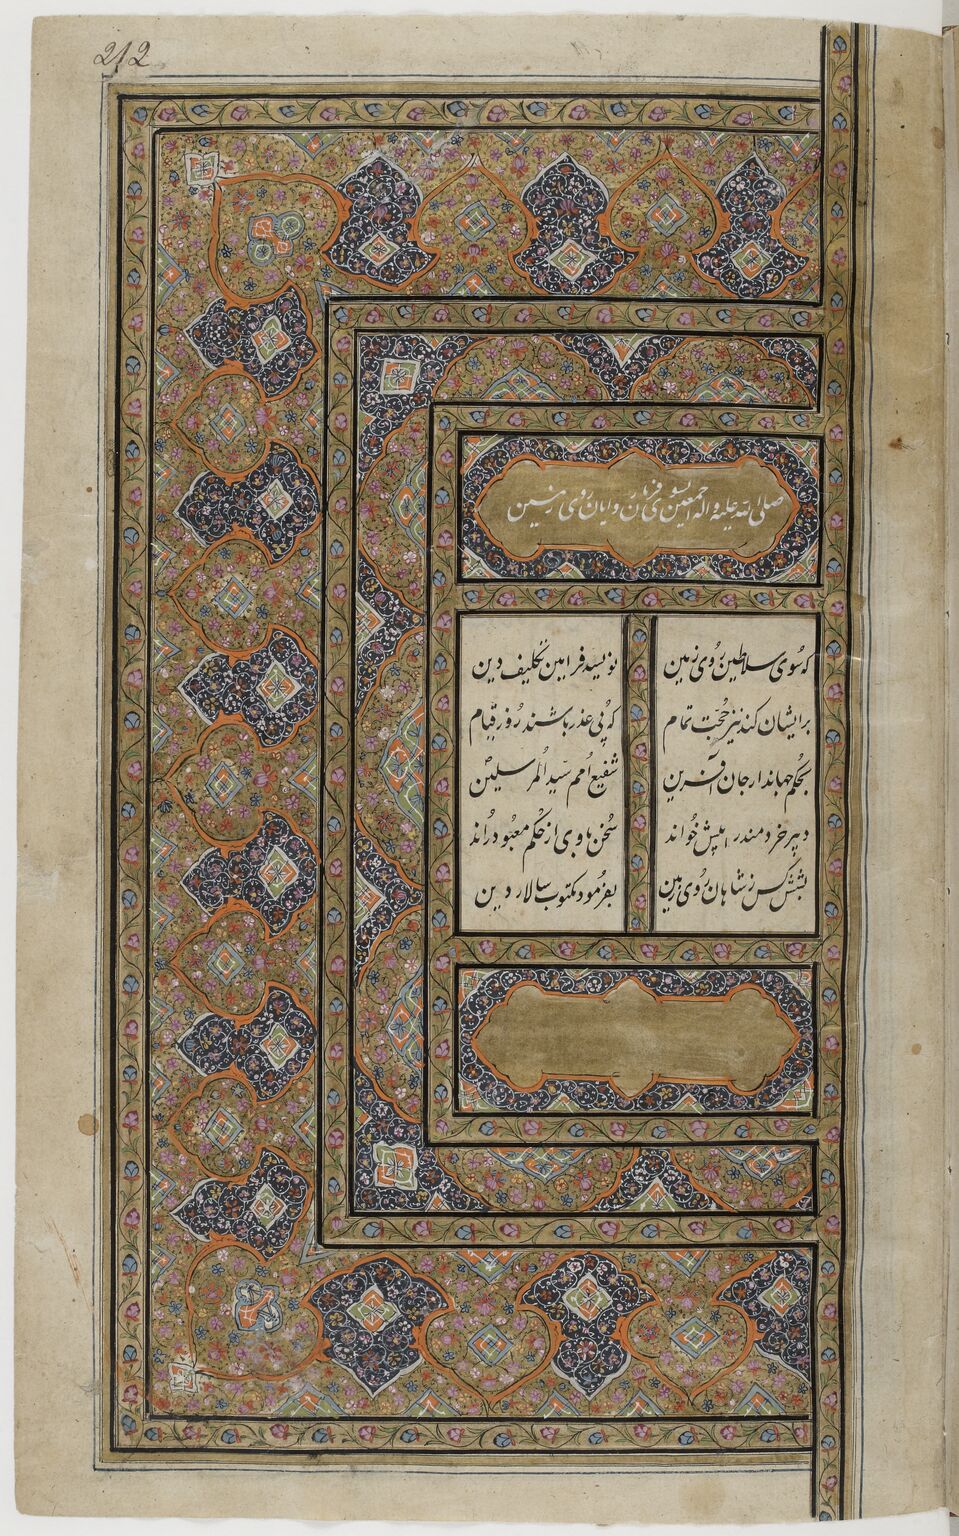 212
صلی الله علیه و اله اجمعین بسوی فرمان روایان روی زمین
که سوی سلاطین روی زمین نویسد فرامین تکلیف دین
بر ایشان کند نیز حجت تمام که بی عذر باشند روز قیام
بحکم جهاندار جان آفرین شفیع امم سید المرسلین
دبیر خردمند را پیش خواند سخن هاوی از حکم معبود راند
بشش کس ز شاهان روی زمین بفرمود مکتوب سالار دین